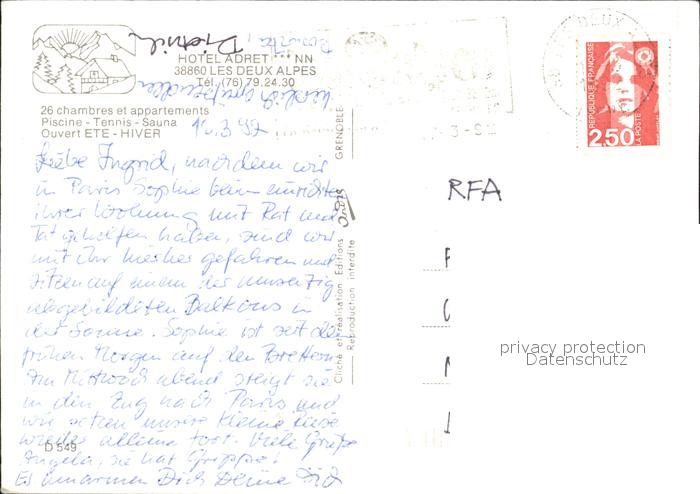 Dietrich
HOTEL ADRET *** NN
38860 LES DEUX ALPES
Tél. (76) 79.24.30
26 chambres et appartements
Piscine - Tennis - Sauna
Ouvert ETE - HIVER
16.3.92
Liebe Ingrid, nachdem wir
in Paris Sophie beim einrichten
ihrer Wohnung mit Rat und
Tat geholfen haben, sind wir
mit ihr hierher gefahren und
sitzen auf einem der umseitig
abgebildeten Balkons in
der Sonne. Sophie ist seit dem
frühen Morgen auf den Brettern.
Am Mittwoch abend steigt sie
in den Zug nach Paris und
wir setzen unsere kleine Reise
wieder alleine fort. Viele Grüße
Angela, sie hat Grippe!
Es umarmen Dich Deine
D 549
GRENOBLE
Cliché et réalisation Editions
Reproduction interdite
REPUBLIQUE FRANÇAISE
2,50
LA POSTE
RFA
privacy protection
Datenschutz